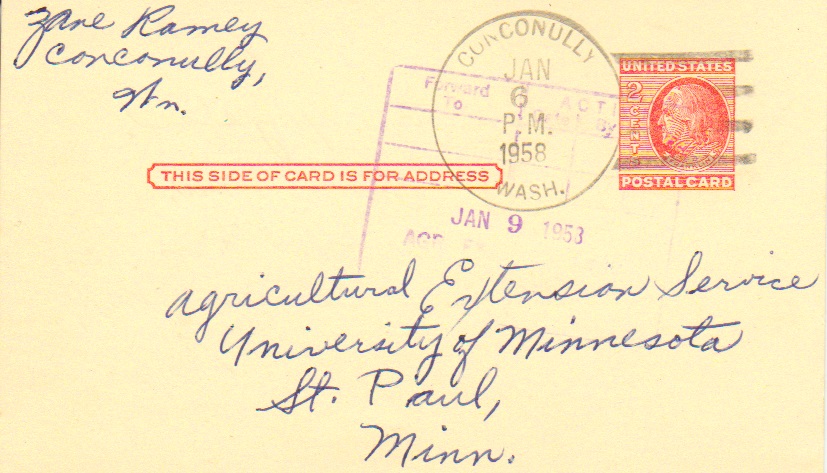 Zane Ramey
Conconully,
Wn.
CONCONULLY
JAN
6
P.M.
1958
WASH.
UNITED STATES
2 CENT
FRANKLIN
POSTAL CARD
Forward
To
ACTI
By
THIS SIDE OF CARD IS FOR ADDRESS
JAN 9 1958
Agricultural Extension Service
University of Minnesota
St. Paul,
Minn.